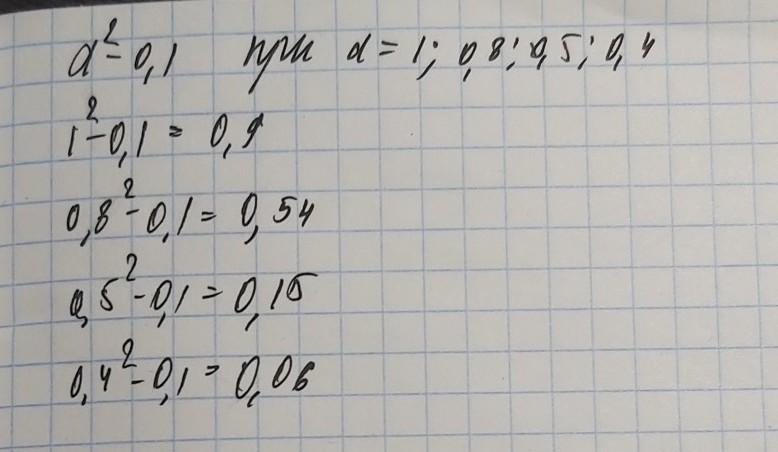 a²-0,1 при a = 1; 0,8; 0,5; 0,4
1²-0,1 = 0,9
0,8²-0,1 = 0,54
0,5²-0,1 = 0,15
0,4²-0,1 = 0,06